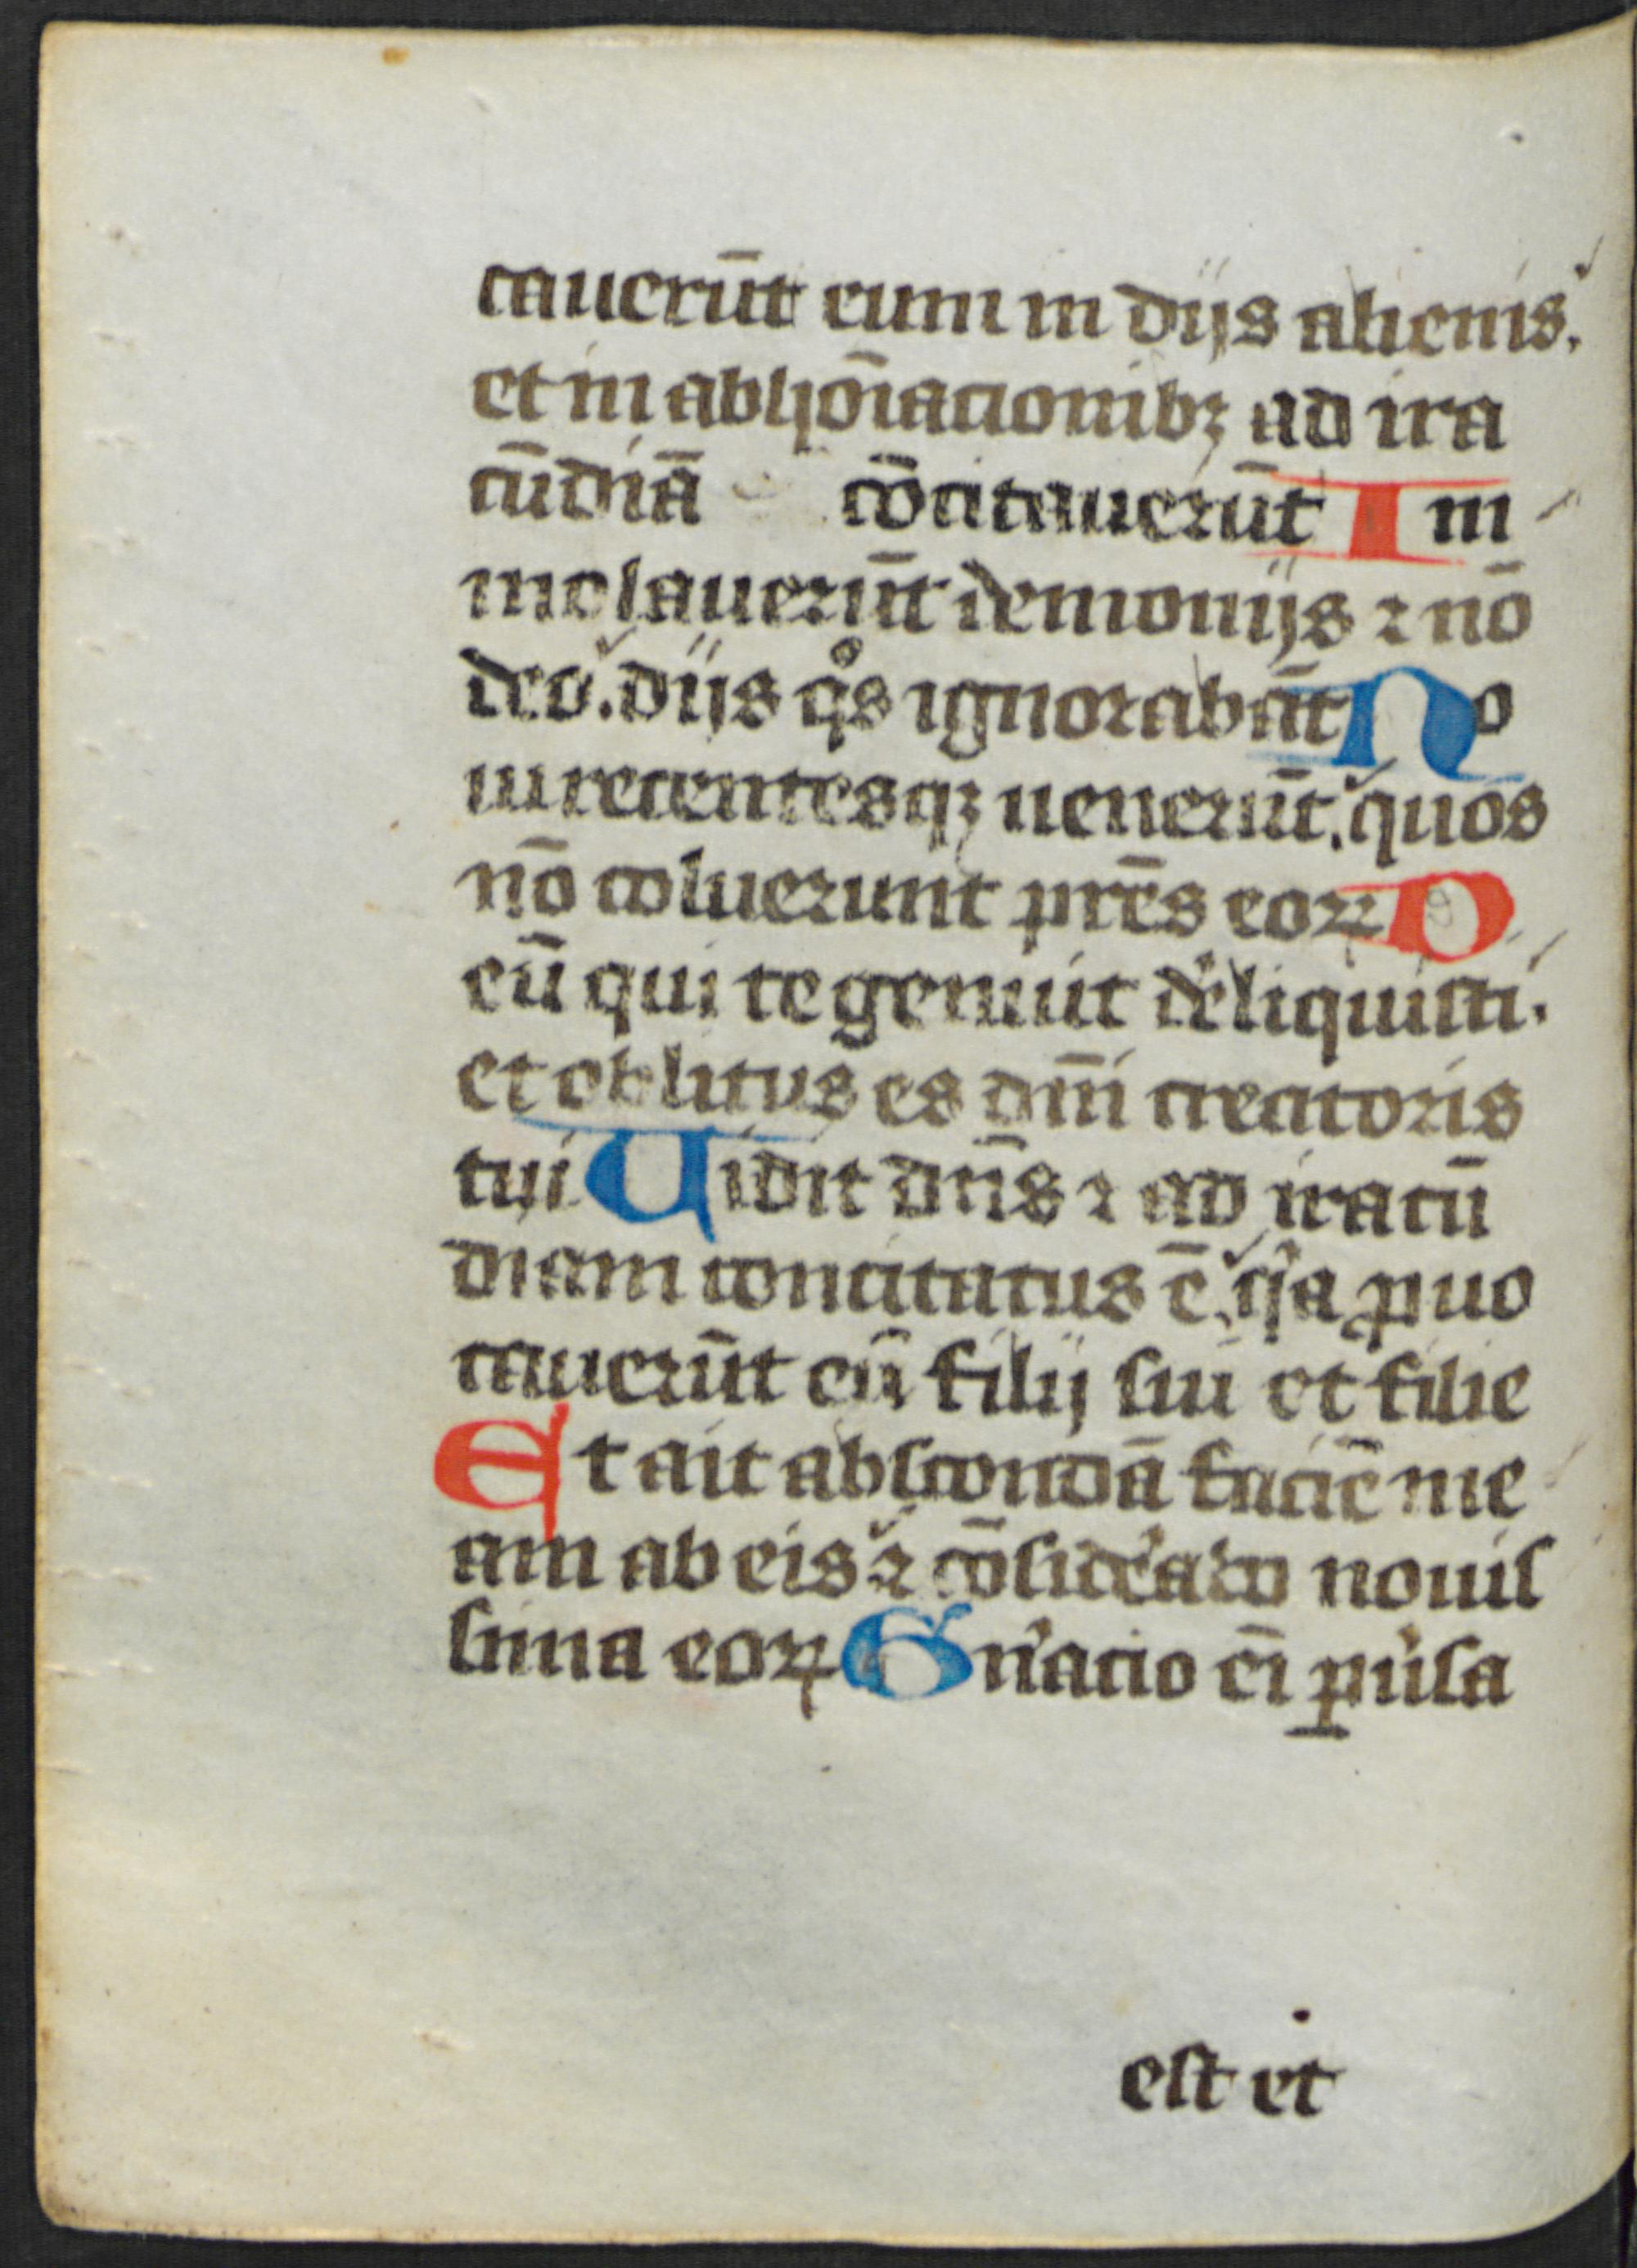 cauerūt eum in dijs alienis.
et in abhōiacionibꝫ ad ira
cūdiā cōcitauerūt Im
molauerūt demonijs ⁊ nō
deo. dijs qͦs ignorabāt No
ui recentesqꝫ uenerūt. quos
nō coluerunt pr̄es eoꝝ D
eū qui te genuit de̓liquisti.
et oblitus es dn̄i creatoris
tui Uidit dn̄s ⁊ ad iracū
diam concitatus ē. qͥa ꝓuo
cauerūt eū filij sui et filie
Et ait abscondā faciē me
am ab eis ⁊ cōside̓abo nouis
sima eoꝝ Gn̓acio ei̅ ꝑue̓sa
est et